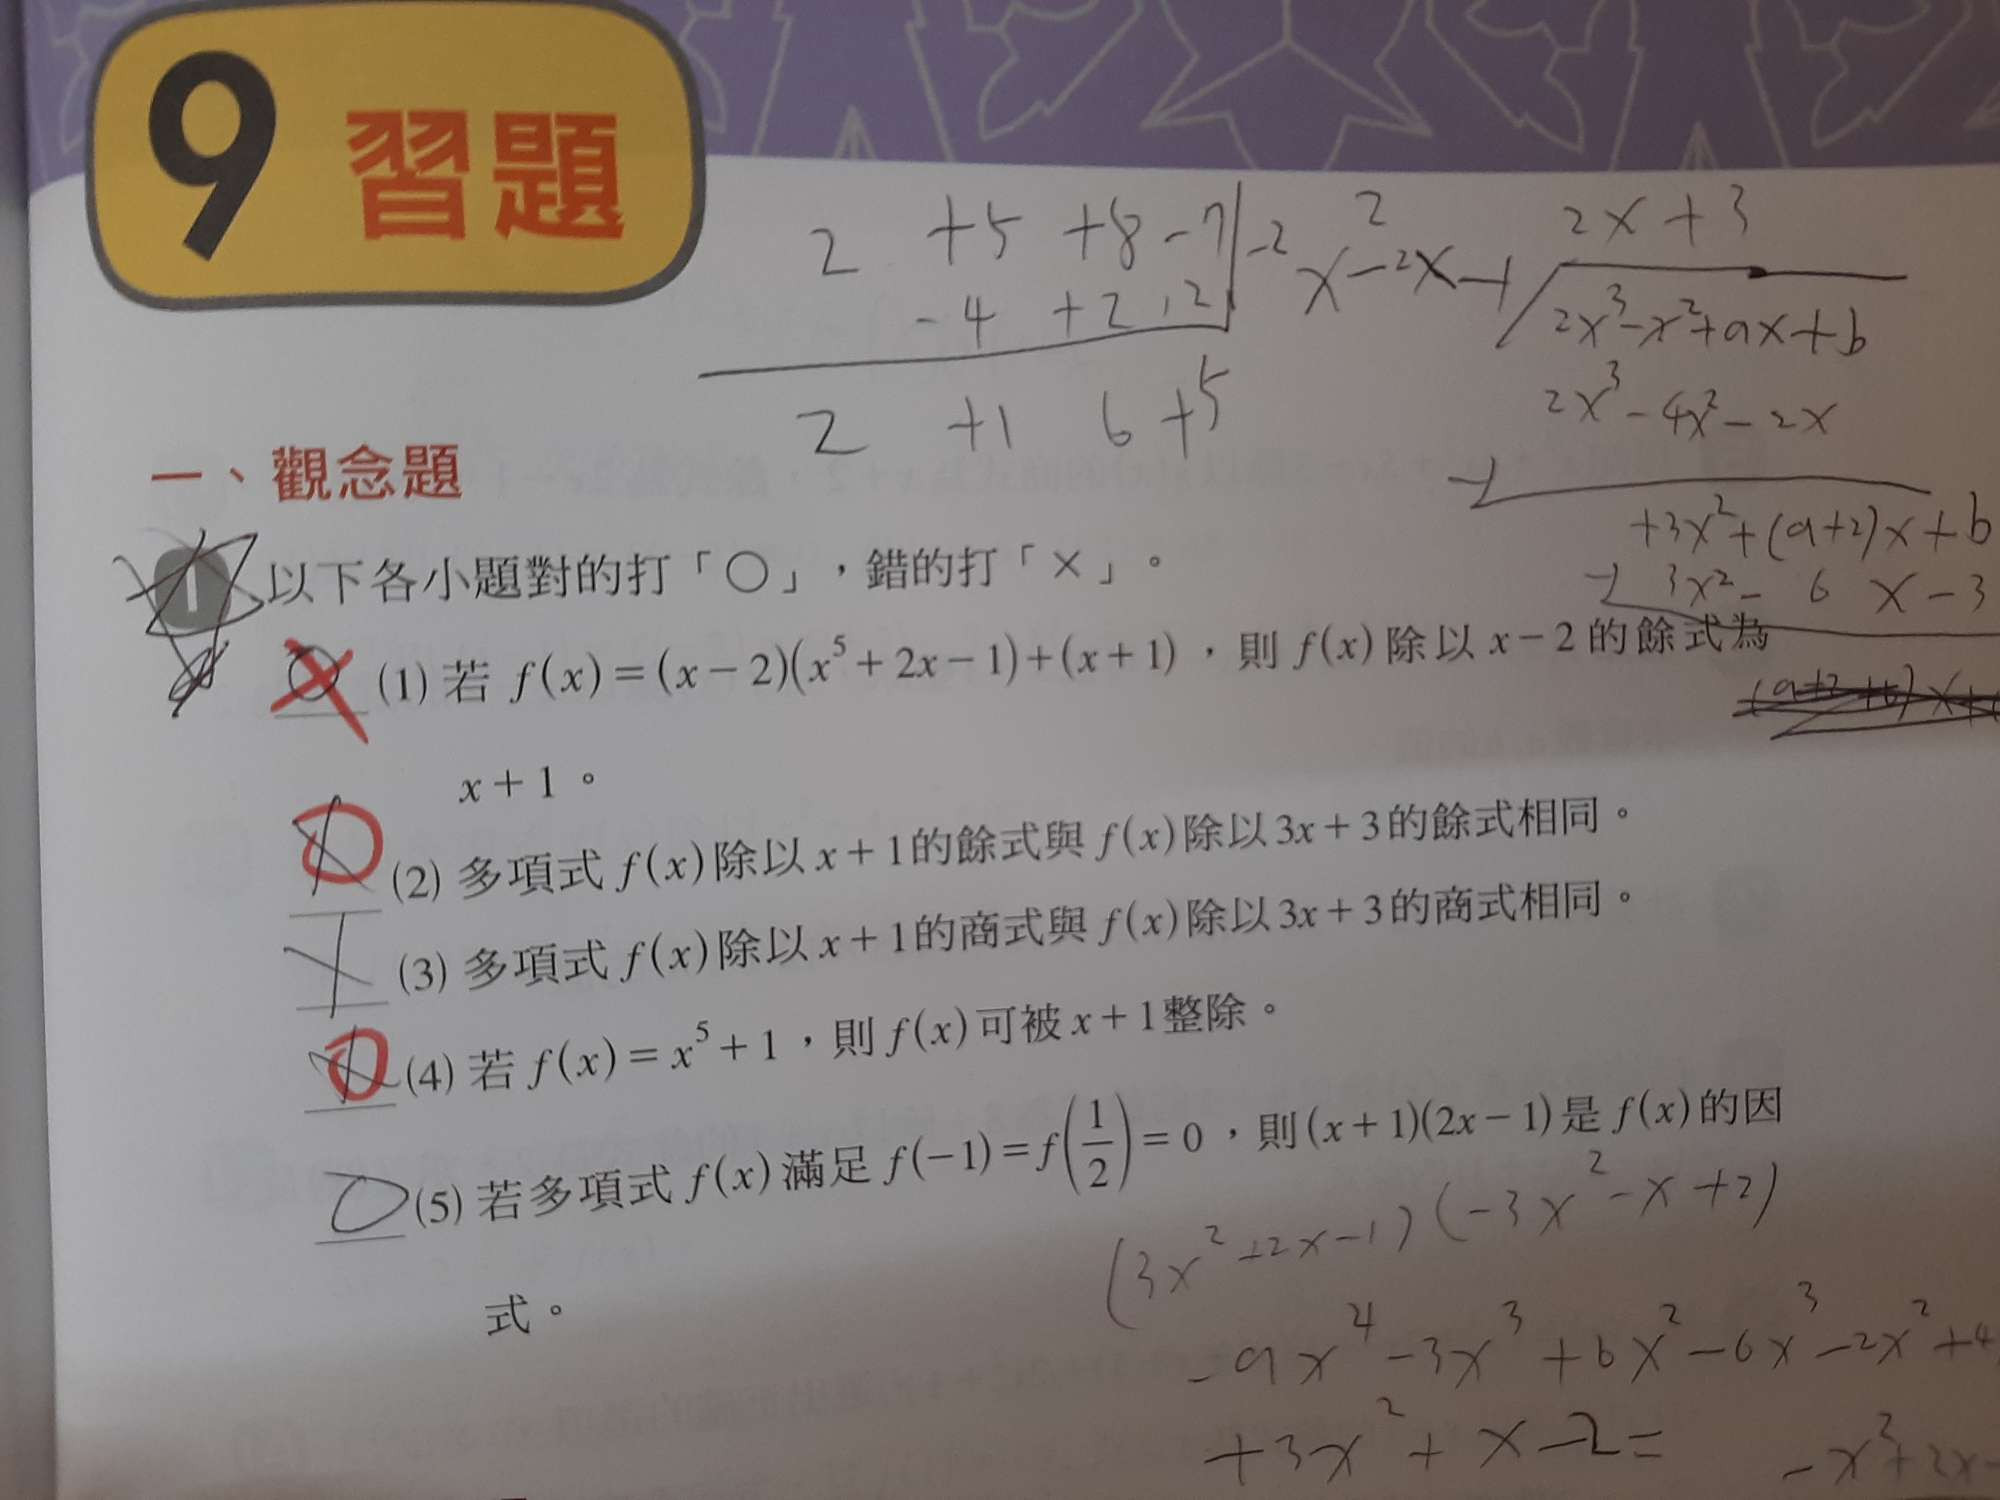 9 習題
2 +5 +8 -7 -2
-4 +2 12
2 +1 6 +5
2x+3
x²-2x-1
2x³-x²+ax+b
2x³-4x²-2x
+3x²+(a+2)x+b
3x²-6x-3
一、觀念題
1 以下各小題對的打「○」,錯的打「×」。
(1) 若 f(x)=(x-2)(x⁵+2x-1)+(x+1),則 f(x) 除以 x-2 的餘式為
x+1。
(2) 多項式 f(x) 除以 x+1 的餘式與 f(x) 除以 3x+3 的餘式相同。
(3) 多項式 f(x) 除以 x+1 的商式與 f(x) 除以 3x+3 的商式相同。
(4) 若 f(x)=x⁵+1,則 f(x) 可被 x+1 整除。
(5) 若多項式 f(x) 滿足 f(-1)=f(1/2)=0,則 (x+1)(2x-1) 是 f(x) 的因
式。
(3x²+2x-1)(-3x²-x+2)
-9x⁴-3x³+6x²-6x³-2x²+4
+3x²+x-2=
-x³+2x-